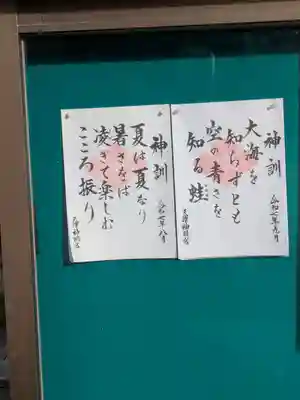 神訓
大海を
知らずとも
空の青さを
知る蛙
令和七年九月
神訓
夏は夏なり
暑さをば
凌ぎて楽しむ
こころ振り
令和七年八月